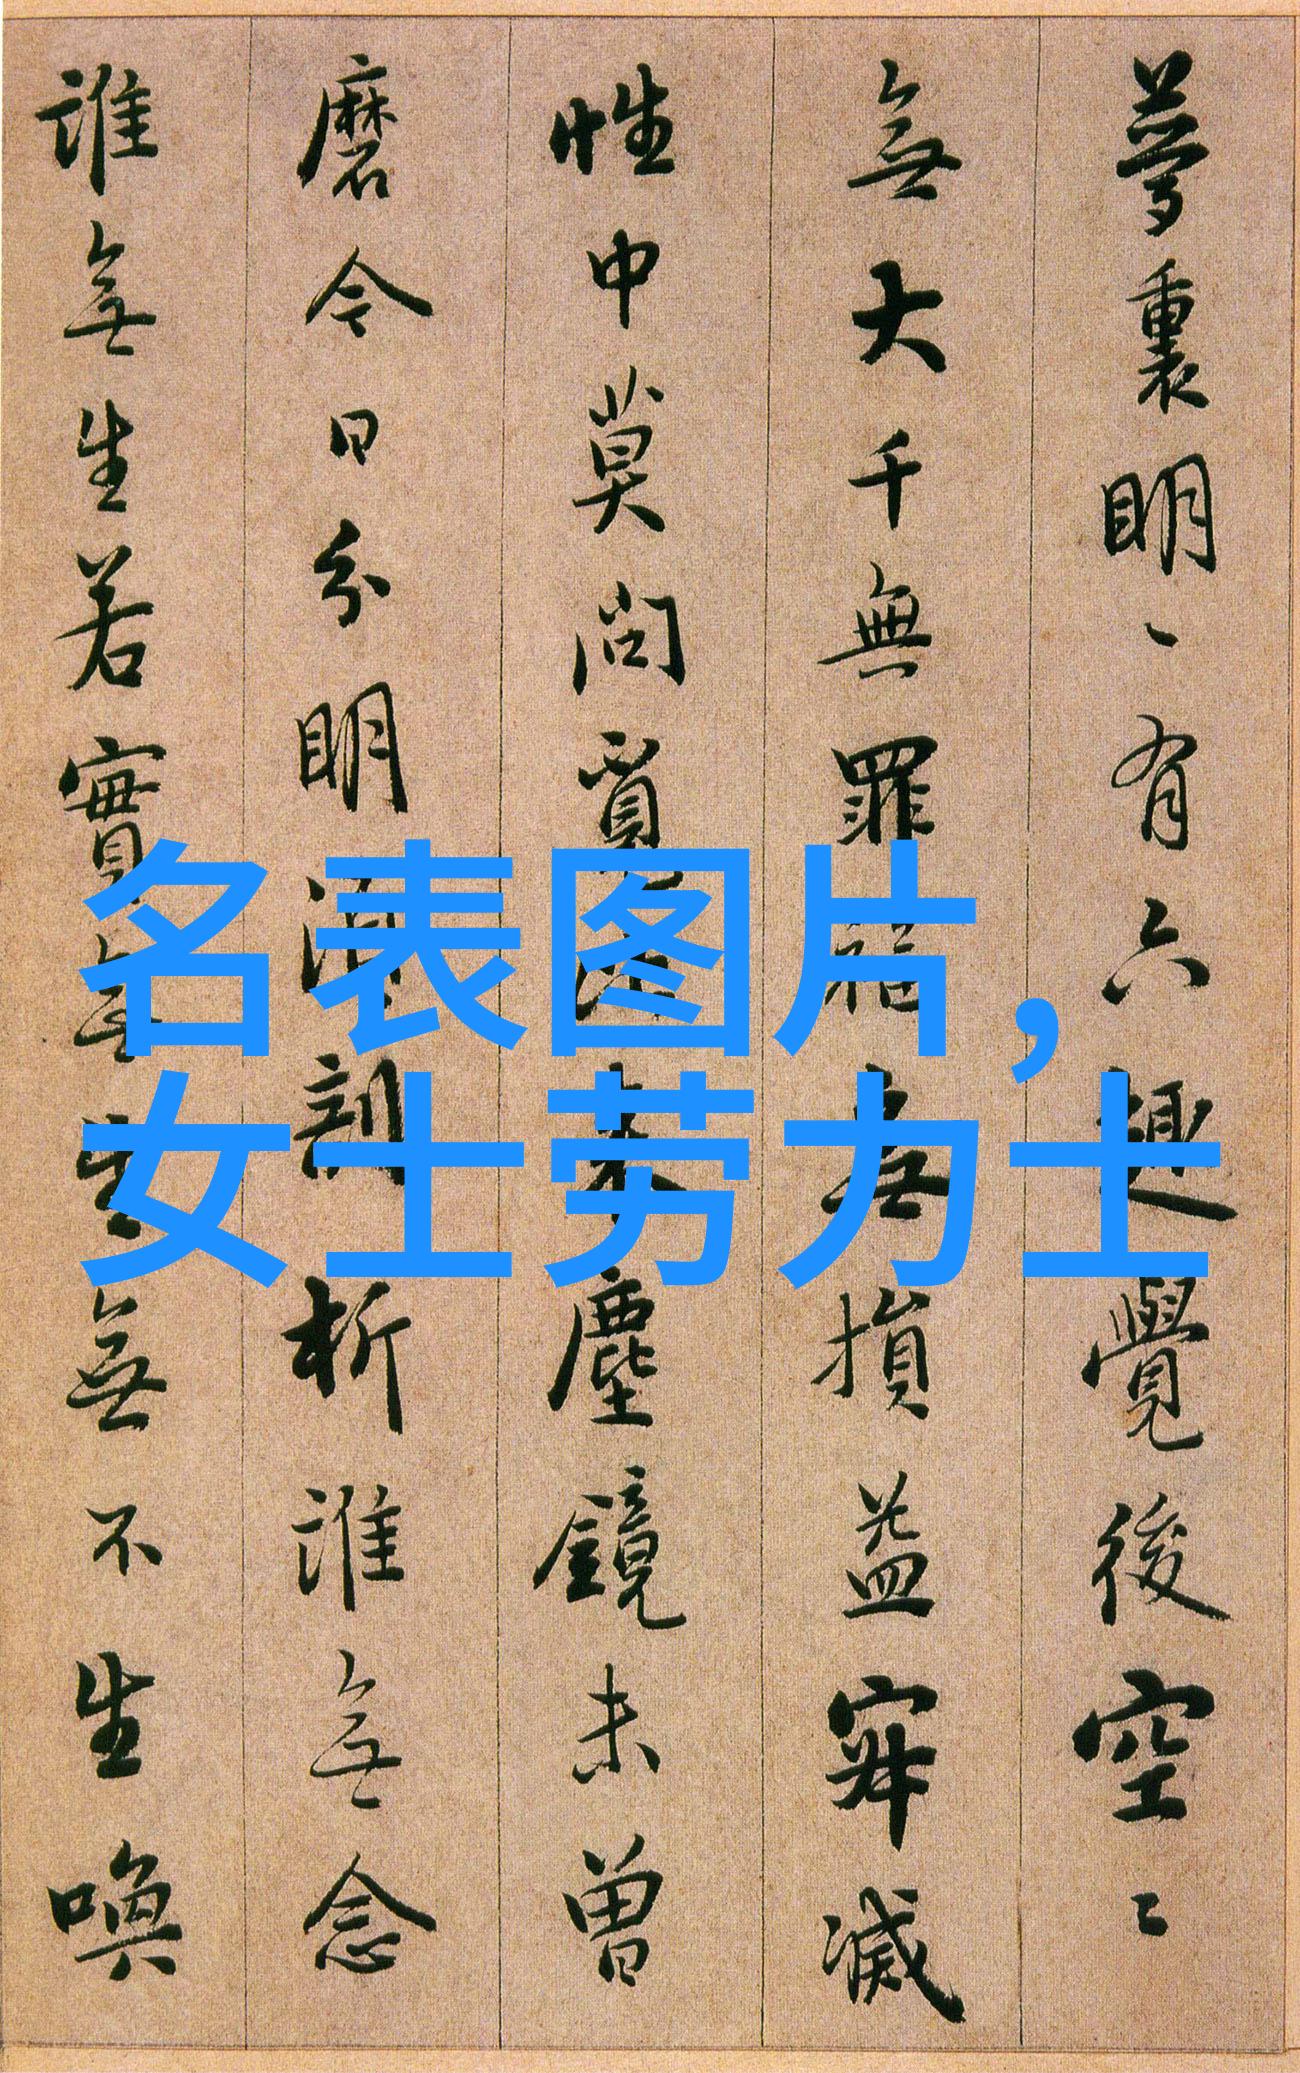 夢裏明丶有六趣覺後空〻
無大千無罪福無損益寂滅
性中莫問覓比来塵鏡未曾
磨今日分明須剖析誰無念
誰無生若實無生無不生喚
名表图片，
女士劳力士